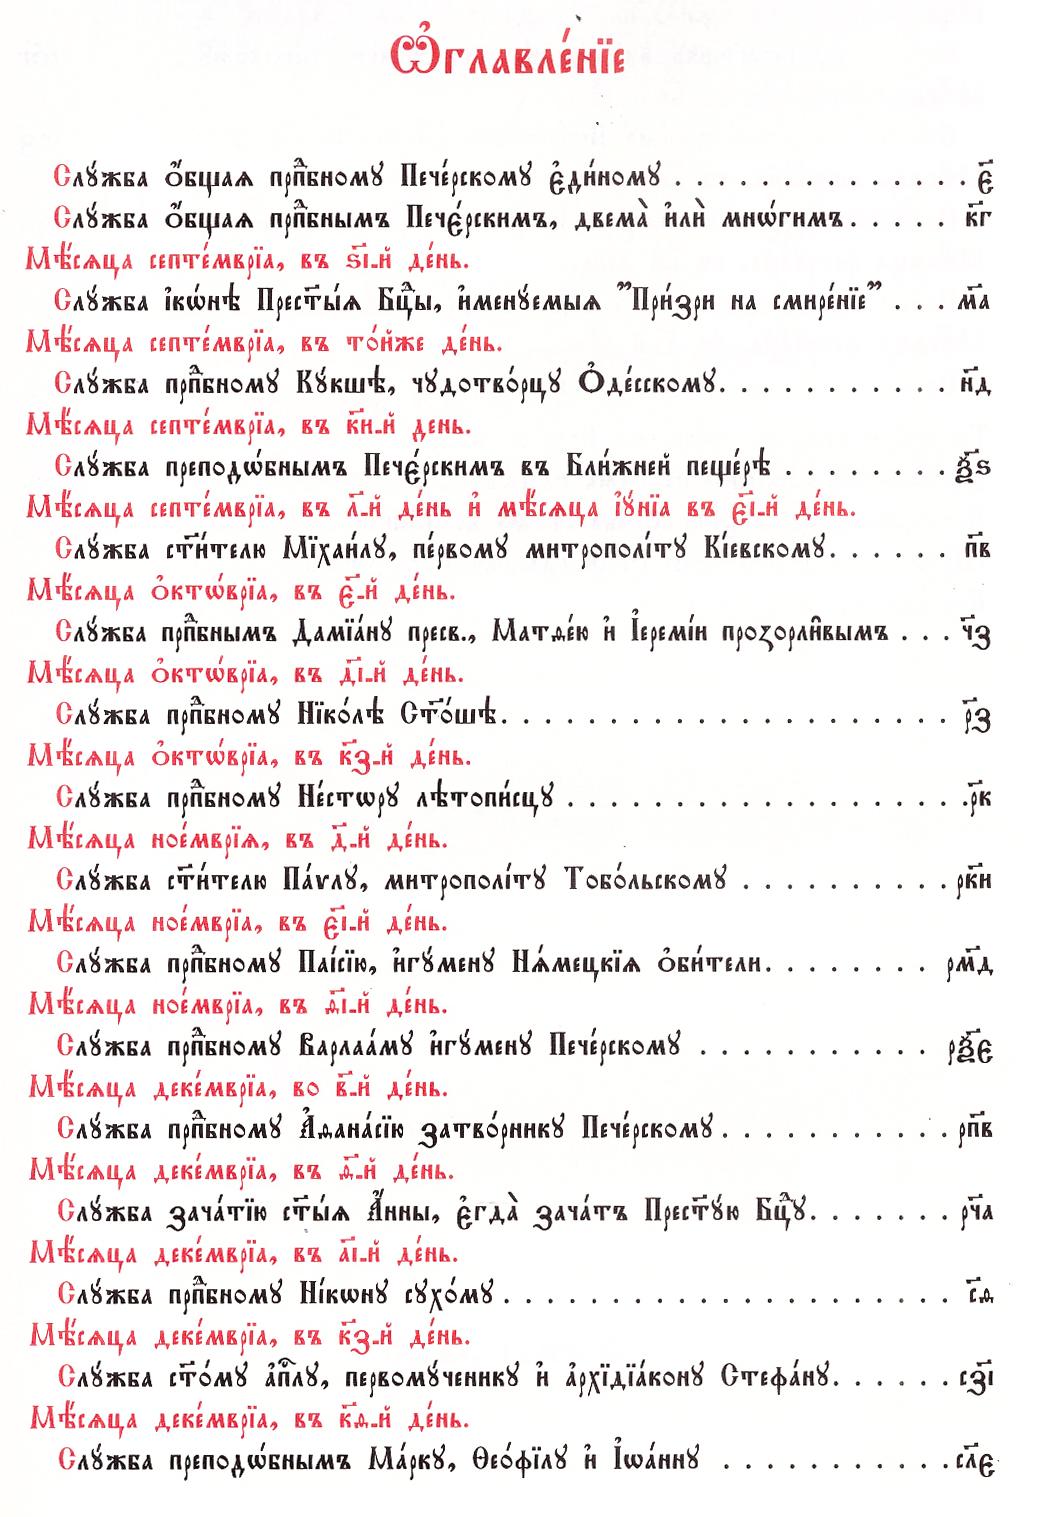 Ѡ҆главле́нїе
Слꙋ́жба ѻ҆́бщаѧ прпⷣбномꙋ Пече́рскомꙋ є҆ди́номꙋ . . . . . . . . . . . . . . є҃
Слꙋ́жба ѻ҆́бщаѧ прпⷣбнымъ Пече́рскимъ, двема̀ и҆лѝ мнѡ́гимъ. . . . . к҃г
Мѣ́сѧца септе́мврїа, въ ѕ҃і-й де́нь.
Слꙋ́жба і҆кѡ́нѣ Прест҃ы́ѧ Бцⷣы, и҆менꙋ́емыѧ "При́зри на смире́нїе" . . . м҃а
Мѣ́сѧца септе́мврїа, въ то́йже де́нь.
Слꙋ́жба прпⷣбномꙋ Кꙋ́кшѣ, чꙋдотво́рцꙋ Ѻ҆де́сскомꙋ. . . . . . . . . . . н҃д
Мѣ́сѧца септе́мврїа, въ к҃и-й день.
Слꙋ́жба преподѡ́бнымъ Пече́рскимъ въ Бли́жней пеще́рѣ . . . . . . . . ѯ҃ѕ
Мѣ́сѧца септе́мврїа, въ л҃-й де́нь и҆ мѣ́сѧца і҆ꙋ́нїа въ є҃і-й де́нь.
Слꙋ́жба ст҃и́телю Мїхаи́лꙋ, пе́рвомꙋ митрополі́тꙋ Кі́евскомꙋ. . . . . . п҃в
Мѣ́сѧца ѻ҆ктѡ́врїа, въ є҃-й де́нь.
Слꙋ́жба прпⷣбнымъ Дамїа́нꙋ пресв., Матѳе́ю и҆ І҆еремі́и прозорли̑вымъ . . . ч҃з
Мѣ́сѧца ѻ҆ктѡ́врїа, въ д҃і-й де́нь.
Слꙋ́жба прпⷣбномꙋ Нїко́лѣ Ст҃о́шѣ. . . . . . . . . . . . . . . . . . . . . р҃з
Мѣ́сѧца ѻ҆ктѡ́врїа, въ к҃з-й де́нь.
Слꙋ́жба прпⷣбномꙋ Не́сторꙋ лѣтопи́сцꙋ . . . . . . . . . . . . . . . . . . .р҃к
Мѣ́сѧца ное́мврїѧ, въ д҃-й де́нь.
Слꙋ́жба ст҃и́телю Па́ѵлꙋ, митрополі́тꙋ Тобо́льскомꙋ . . . . . . . . . . рк҃и
Мѣ́сѧца ное́мврїа, въ є҃і-й де́нь.
Слꙋ́жба прпⷣбномꙋ Паі́сїю, и҆гꙋ́менꙋ Нѧ́мецкїѧ ѻ҆би́тели. . . . . . . . . рм҃д
Мѣ́сѧца ное́мврїа, въ ѳ҃і-й де́нь.
Слꙋ́жба прпⷣбномꙋ Варлаа́мꙋ и҆гꙋ́менꙋ Пече́рскомꙋ . . . . . . . . . . . рѯ҃є
Мѣ́сѧца деке́мврїа, во в҃-й де́нь.
Слꙋ́жба прпⷣбномꙋ А҆ѳана́сїю затво́рникꙋ Пече́рскомꙋ. . . . . . . . . . . рп҃в
Мѣ́сѧца деке́мврїа, въ ѳ҃-й де́нь.
Слꙋ́жба зача́тїю ст҃ы́ѧ А҆́нны, є҆гда̀ зача́тъ Прест҃ꙋ́ю Бцⷣꙋ. . . . . . . рч҃а
Мѣ́сѧца деке́мврїа, въ а҃і-й де́нь.
Слꙋ́жба прпⷣбномꙋ Ні́кѡнꙋ сꙋхо́мꙋ . . . . . . . . . . . . . . . . . . . . . с҃ѳ
Мѣ́сѧца деке́мврїа, въ к҃з-й де́нь.
Слꙋ́жба ст҃о́мꙋ а҆пⷭ҇лꙋ, первомꙋ́ченикꙋ и҆ а҆рхїдїа́конꙋ Стефа́нꙋ. . . . . . сз҃і
Мѣ́сѧца деке́мврїа, въ к҃ѳ-й де́нь.
Слꙋ́жба преподѡ́бнымъ Ма́ркꙋ, Ѳео́фїлꙋ и҆ І҆ѡа́ннꙋ . . . . . . . . . . . сл҃є